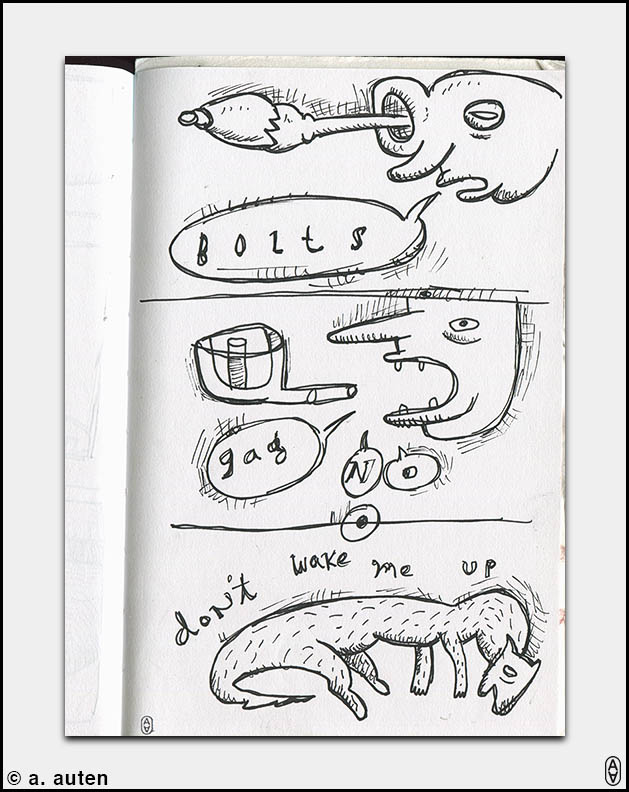 Bolts
gag
NO
don't wake me up
© a. auten